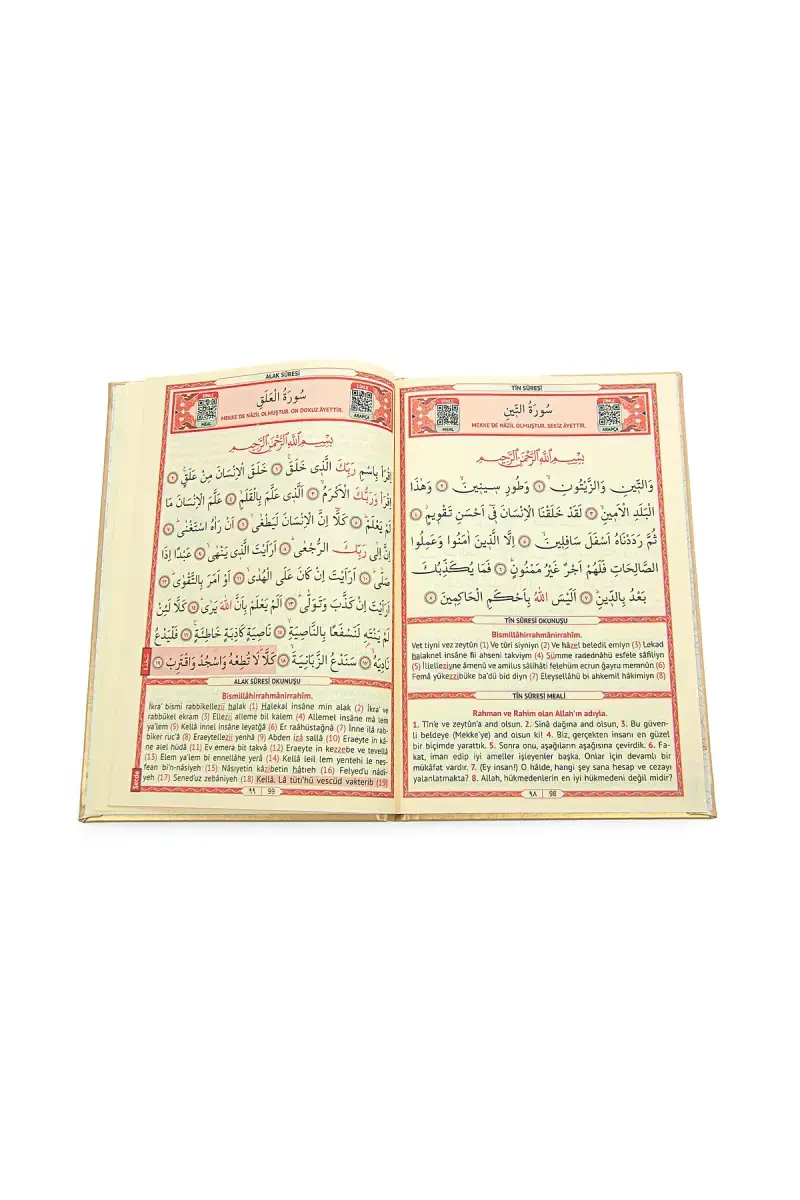 TİN SÛRESİ
DİNLE
MEAL
سُورَةُ التّ۪ينِ
MEKKE'DE NÂZİL OLMUŞTUR. SEKİZ ÂYETTİR.
DİNLE
ARAPÇA
بِسْــــــمِ اللّٰهِ الرَّحْمٰنِ الرَّح۪يمِ
وَالتّ۪ينِ وَالزَّيْتُونِۙ ﴿١﴾ وَطُورِ س۪ين۪ينَۙ ﴿٢﴾ وَهٰذَا
الْبَلَدِ الْاَم۪ينِۙ ﴿٣﴾ لَقَدْ خَلَقْنَا الْاِنْسَانَ ف۪ٓي اَحْسَنِ تَقْو۪يمٍۘ ﴿٤﴾
ثُمَّ رَدَدْنَاهُ اَسْفَلَ سَافِل۪ينَۙ ﴿٥﴾ اِلَّا الَّذ۪ينَ اٰمَنُوا وَعَمِلُوا
الصَّالِحَاتِ فَلَهُمْ اَجْرٌ غَيْرُ مَمْنُونٍۜ ﴿٦﴾ فَمَا يُكَذِّبُكَ
بَعْدُ بِالدّ۪ينِۜ ﴿٧﴾ اَلَيْسَ اللّٰهُ بِاَحْكَمِ الْحَاكِم۪ينَ ﴿٨﴾
TİN SÛRESİ OKUNUŞU
Bismillâhirrahmânirrahîm.
Vet tiyni vez zeytûn (1) Ve tûri siyniyn (2) Ve hâzel beledil emiyn (3) Lekad
halaknel insâne fîi ahseni takviym (4) Sümme radednâhü esfele sâfiliyn
(5) İllellezîyne âmenû ve amilus sâlihâti felehüm ecrun ğayru memnûn (6)
Femâ yükezzibüke ba'dü bid diyn (7) Eleysellâhü bi ahkemil hâkimiyn (8)
TİN SÛRESİ MEÂLİ
Rahman ve Rahîm olan Allah'ın adıyla.
1. Tîn'e ve zeytûn'a and olsun. 2. Sînâ dağına and olsun, 3. Bu güven-
li beldeye (Mekke'ye) and olsun ki! 4. Biz, gerçekten insanı en güzel
bir biçimde yarattık. 5. Sonra onu, aşağıların aşağısına çevirdik. 6. Fa-
kat, iman edip iyi ameller işleyenler başka. Onlar için devamlı bir
mükâfat vardır. 7. (Ey insan!) O hâlde, hangi şey sana hesap ve cezayı
yalanlatmakta? 8. Allah, hükmedenlerin en iyi hükmedeni değil midir?
٩٨ 98
ALAK SÛRESİ
DİNLE
MEAL
سُورَةُ الْعَلَقِ
MEKKE'DE NÂZİL OLMUŞTUR. ON DOKUZ ÂYETTİR.
DİNLE
ARAPÇA
بِسْــــــمِ اللّٰهِ الرَّحْمٰنِ الرَّح۪يمِ
اِقْرَأْ بِاسْمِ رَبِّكَ الَّذ۪ي خَلَقَۚ ﴿١﴾ خَلَقَ الْاِنْسَانَ مِنْ عَلَقٍۚ ﴿٢﴾
اِقْرَأْ وَرَبُّكَ الْاَكْرَمُۙ ﴿٣﴾ اَلَّذ۪ي عَلَّمَ بِالْقَلَمِۙ ﴿٤﴾ عَلَّمَ الْاِنْسَانَ مَا
لَمْ يَعْلَمْۜ ﴿٥﴾ كَلَّٓا اِنَّ الْاِنْسَانَ لَيَطْغٰىۙ ﴿٦﴾ اَنْ رَاٰهُ اسْتَغْنٰىۜ ﴿٧﴾
اِنَّ اِلٰى رَبِّكَ الرُّجْعٰىۜ ﴿٨﴾ اَرَاَيْتَ الَّذ۪ي يَنْهٰىۙ ﴿٩﴾ عَبْدًا اِذَا
صَلّٰىۜ ﴿١٠﴾ اَرَاَيْتَ اِنْ كَانَ عَلَى الْهُدٰىۙ ﴿١١﴾ اَوْ اَمَرَ بِالتَّقْوٰىۜ ﴿١٢﴾
اَرَاَيْتَ اِنْ كَذَّبَ وَتَوَلّٰىۜ ﴿١٣﴾ اَلَمْ يَعْلَمْ بِاَنَّ اللّٰهَ يَرٰىۜ ﴿١٤﴾ كَلَّا لَئِنْ
لَمْ يَنْتَهِ لَنَسْفَعًا بِالنَّاصِيَةِۙ ﴿١٥﴾ نَاصِيَةٍ كَاذِبَةٍ خَاطِئَةٍۚ ﴿١٦﴾ فَلْيَدْعُ
نَادِيَهُۙ ﴿١٧﴾ سَنَدْعُ الزَّبَانِيَةَۙ ﴿١٨﴾ كَلَّاۜ لَا تُطِعْهُ وَاسْجُدْ وَاقْتَرِبْ ﴿١٩﴾
ALAK SÛRESİ OKUNUŞU
Bismillâhirrahmânirrahîm.
İkra' bismi rabbikellezîi halak (1) Halekal insâne min alak (2) İkra' ve
rabbükel ekram (3) Ellezîi alleme bil kalem (4) Allemel insâne mâ lem
ya'lem (5) Kellâ innel insâne leyatğâ (6) Er raâhüstağnâ (7) İnne ilâ rab-
biker ruc'â (8) Eraeytellezîi yenhâ (9) Abden izâ sallâ (10) Eraeyte in kâ-
ne alel hüdâ (11) Ev emera bit takvâ (12) Eraeyte in kezzebe ve tevellâ
(13) Elem ya'lem bi ennellâhe yerâ (14) Kellâ leil lem yentehi le nes-
fean bi'n-nâsiyeh (15) Nâsiyetin kâzibetin hâtıeh (16) Felyed'u nâdi-
yeh (17) Sened'uz zebâniyeh (18) Kellâ. Lâ tüti'hü vescüd vakterib (19)
Secde
٩٩ 99